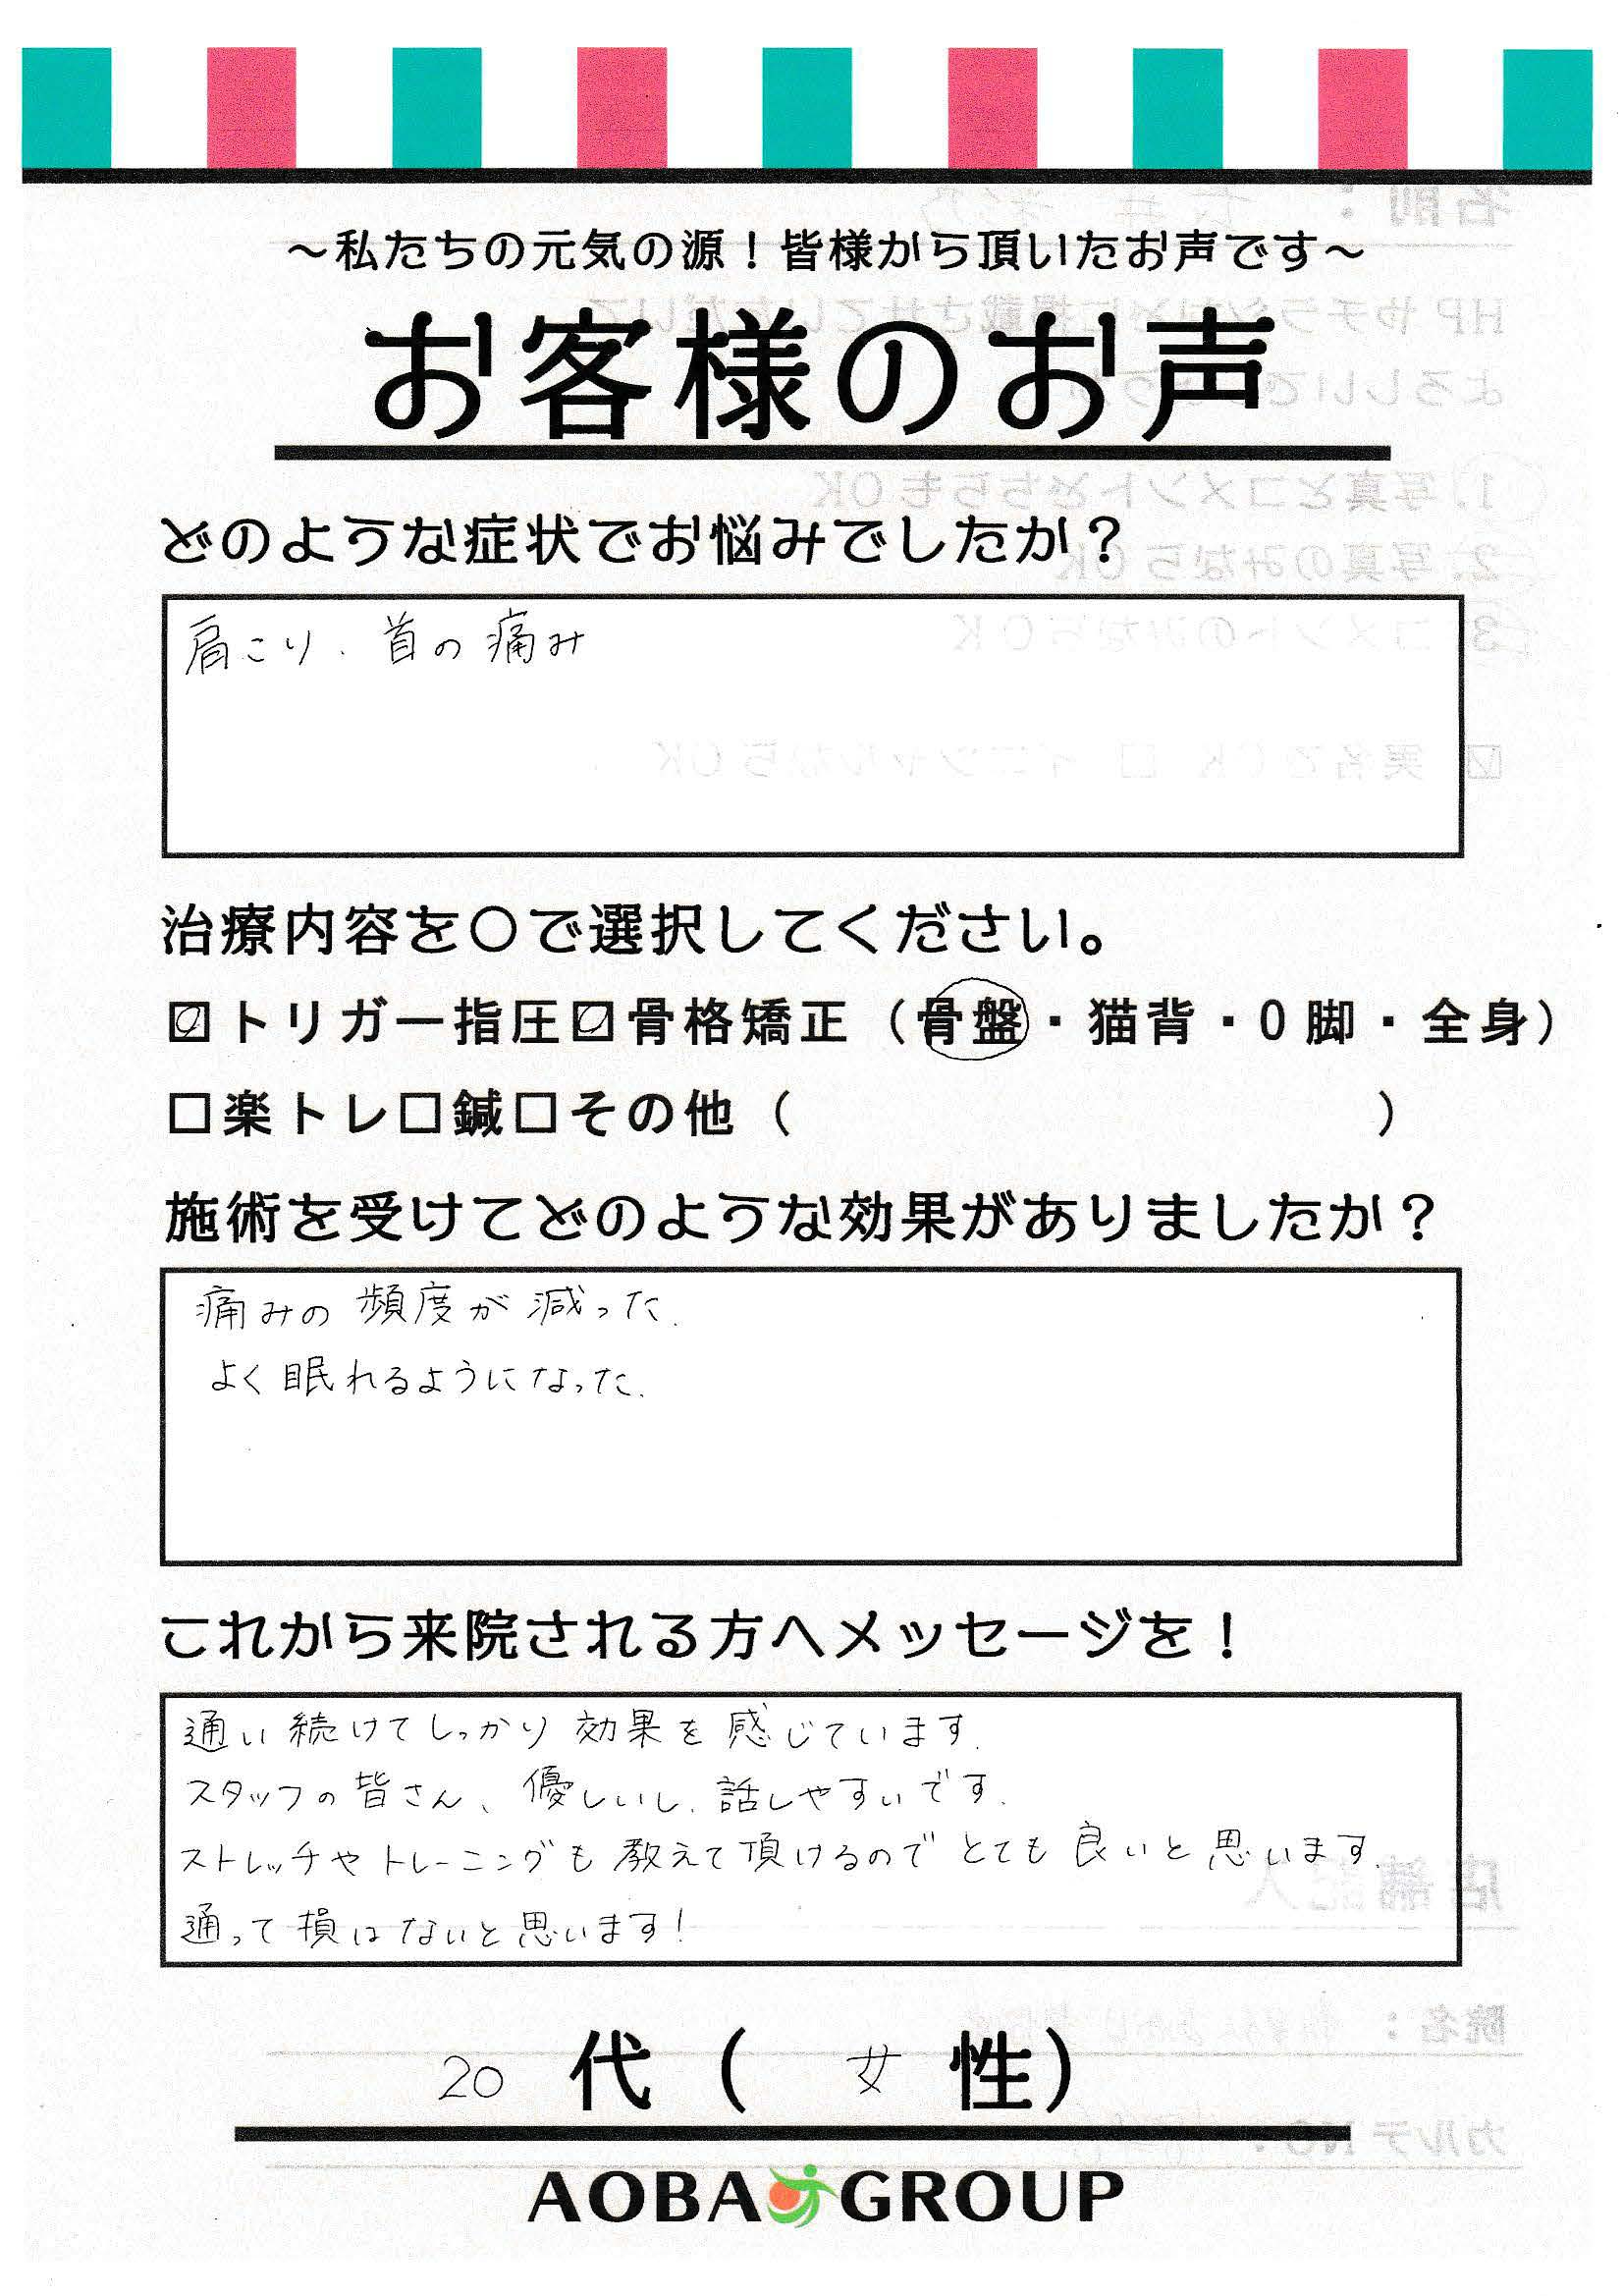 ～私たちの元気の源！皆様から頂いたお声です～
お客様のお声
どのような症状でお悩みでしたか？
肩こり、首の痛み
治療内容を○で選択してください。
☑トリガー指圧☑骨格矯正（骨盤・猫背・O脚・全身）
□楽トレ□鍼□その他（　　　　　　　　　　）
施術を受けてどのような効果がありましたか？
痛みの頻度が減った。
よく眠れるようになった。
これから来院される方へメッセージを！
通い続けてしっかり効果を感じています。
スタッフの皆さん、優しいし、話しやすいです。
ストレッチやトレーニングも教えて頂けるのでとても良いと思います。
通って損はないと思います！
20代（女性）
AOBA GROUP